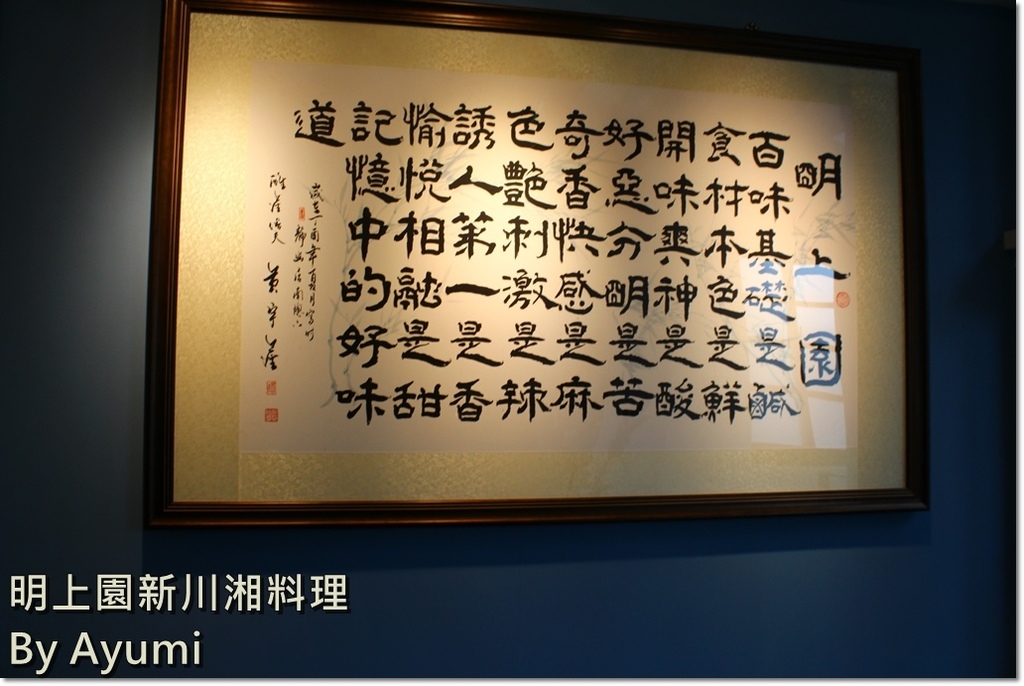 明上園
百味基礎是鹹
食材本色是鮮
開味爽神是酸
好惡分明是苦
奇香快感是麻
色艷刺激是辣
誘人第一是香
愉悅相融是甜
記憶中的好味
道
明上園新川湘料理
By Ayumi